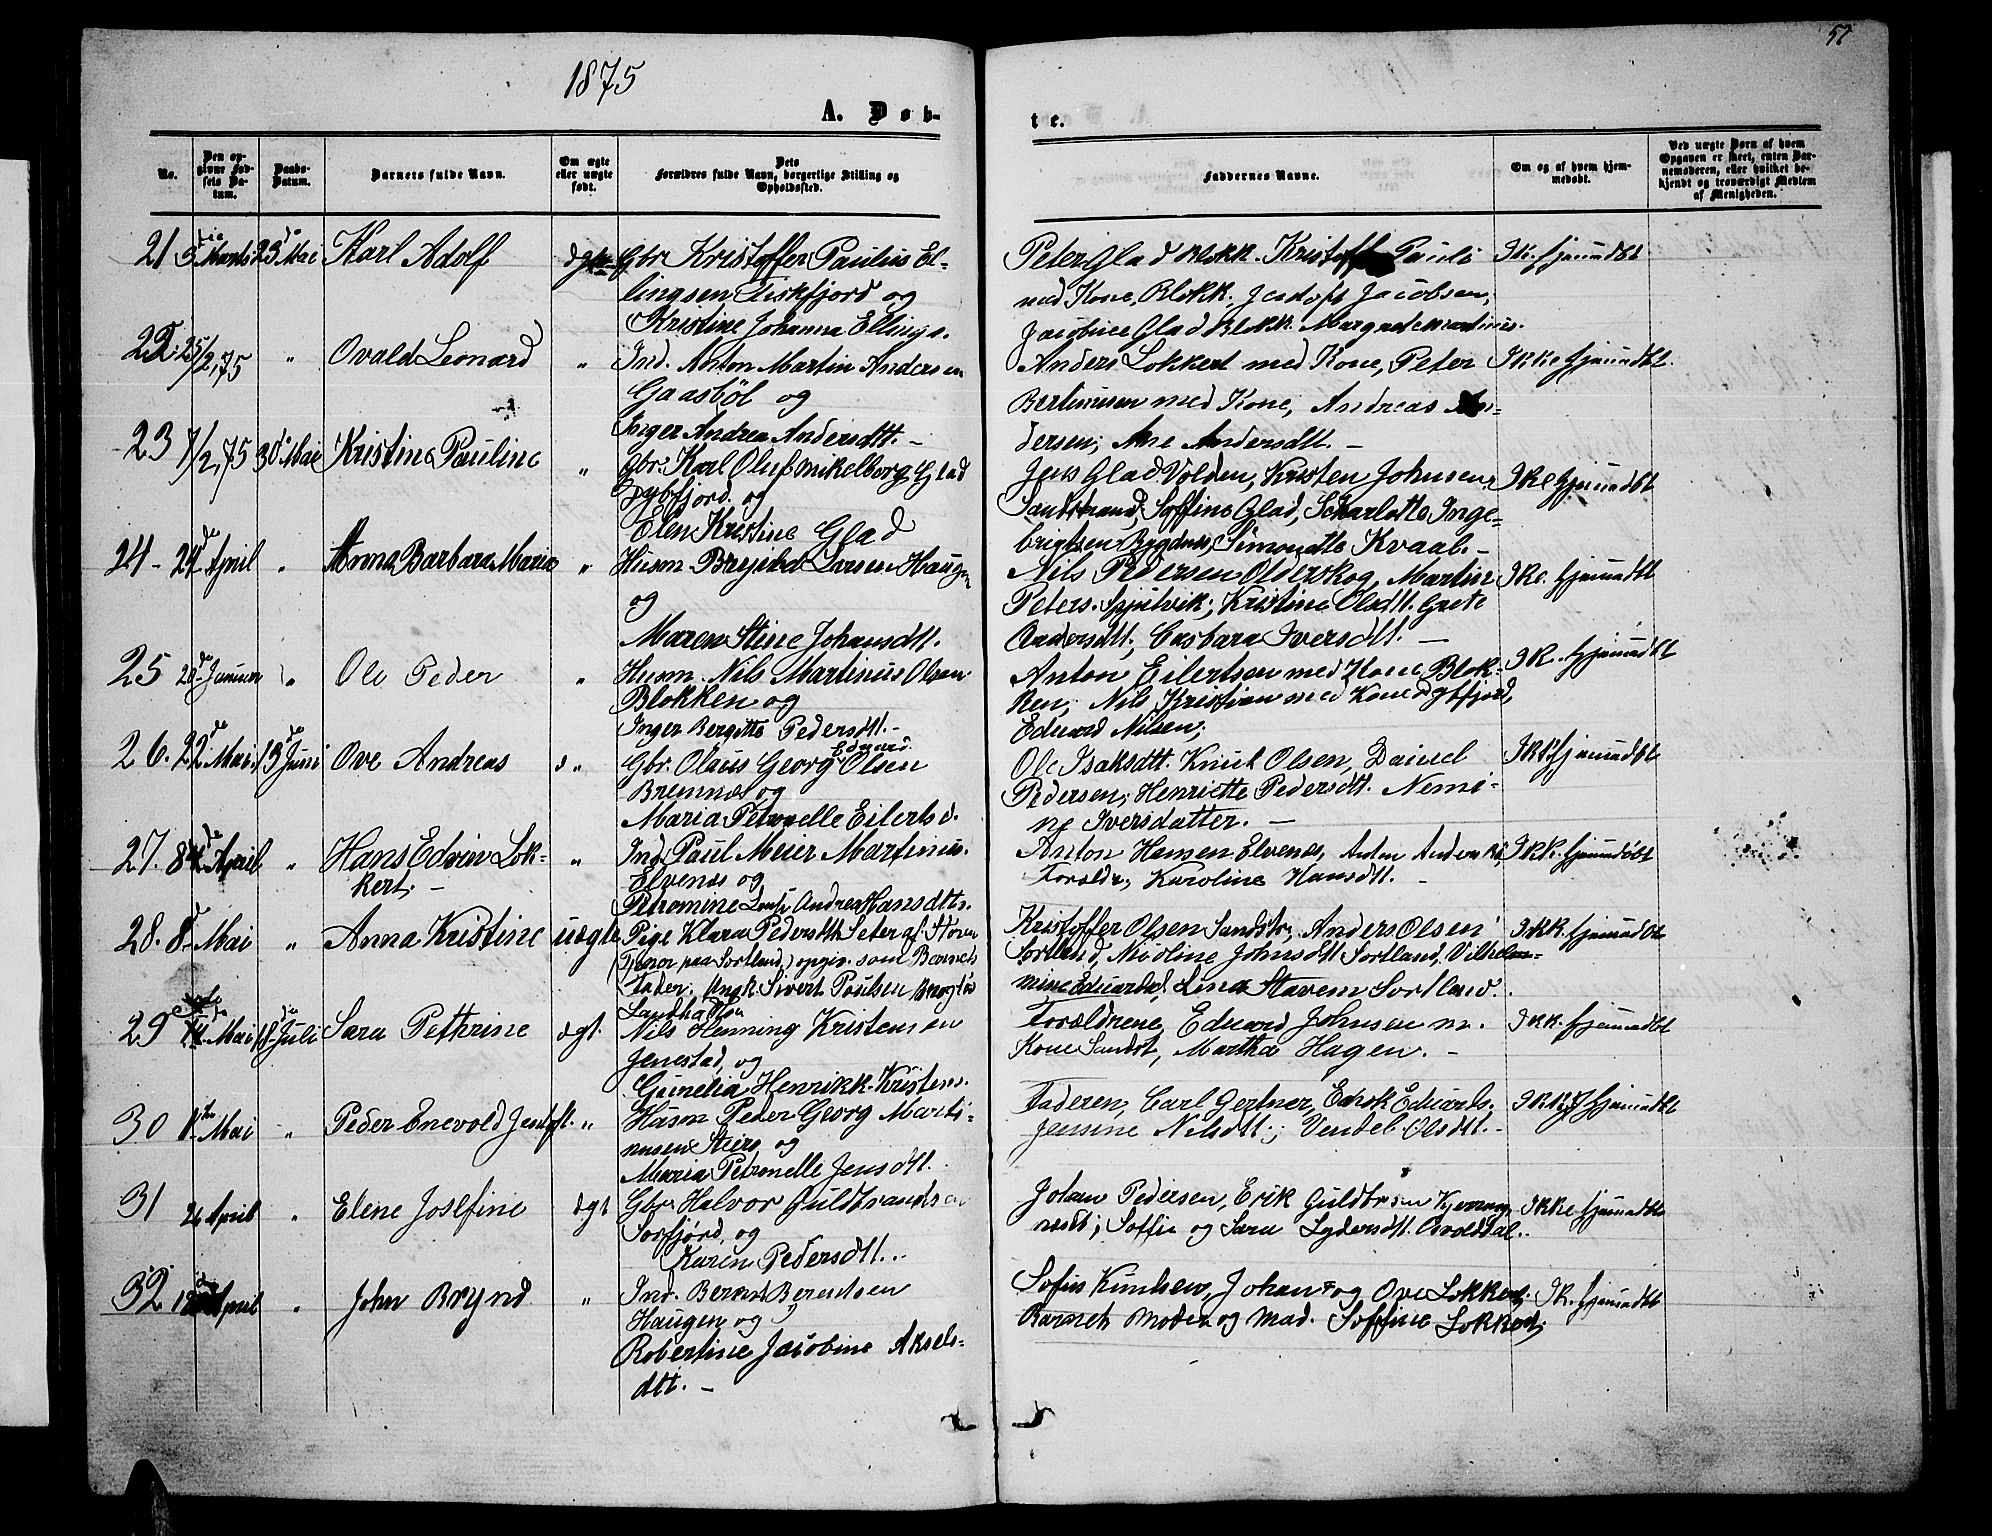 57
1875
A. Døb-
te.
No.
Den opgivne Fødsels Datum.
Daabs-Datum.
Barnets fulde Navn.
Om ægte eller uægte født.
Dets Forældres fulde Navn, borgerlige Stilling og Opholdssted.
Faddernes Navne.
Om og af hvem hjemmedøbt.
Ved uægte Børn af hvem Opgaven er skeet, enten Barnemoderen, eller hvilket bekjendt og troværdigt Medlem af Menigheden.
21 3die Marts 23d Mai Karl Adolf ægte Gbr Kristoffer Paulus El-
lingsen Eidsfjord og
Kristine Johanna Ellings.
Peter Glad Blokk. Kristoff Pauli
med Kone, Blokk, Jentoft Jacobsen,
Jacobine Glad Blokk. Margrete Martinus.
22 25/2,75 " Ovald Leonard " Ind. Anton Martin Andersen
Gaasbøl og
Inger Andrea Andersdtt. –
Anders Lokkert med Kone, Peter
Bertinusen med Kone, Andreas An-
dersen; Ane Andersdtt. –
Ikke hjemmdbt.
23 7/2,75 30d Mai Kristine Pauline " Gbr. Karl Oluf Mikelborg Glad
Dybfjord og
Elen Kristine Glad
Jens Glad Volden, Kristen Johnsen
Sandstrand, Soffine Glad, Scharlotte Inge-
brigtsen Bygdnes, Simondtte Kvaal. –
24 – 24de April " Anna Barbara Maria " Husm Larsen Haugen
og
Maren Stine Johansdtt.
Nils Pedersen Olderskog, Martin
Peters. , Kristine Olsdtt. Grete
Andersdtt, Barbara Iversdtt. –
25 20de Januar " Ole Peder " Husm. Nils Martinus Olsen
Blokken og
Inger Bergitte Pedersdtt. –
Anton Eilertsen med Kone Blok-
ken, Nils Kristian med Kone Dybfjord,
Eduard Nilsen;
26. 22de Mai 13d Juni Ove Andreas " Gbr. Olaus Georg Edvard Olsen
Bremnes og
Maria Petronelle Eilertsd.
Ole Isaksdtt. Knut Olsen, Daniel
Pedersen, Henriette Pedersdt. Nemi-
ne Iversdatter. –
27. 8de April " Hans Edvin Lok-
kert. –
" Ind. Paul Meier Martinus.
Elvenes og
Petromine Andrea Hansdtt.
Anton Hansen Elvenes, Anton Anders
Forældr, Karoline Hansdt. –
28. 8d Mai " Anna Kristine uægte Pige Klara Pedersdtt
(Tjener paa Sortland,) opgiv. som Barnets
Fader, Ungk Sivert Paulsen
Kristoffer Olsen Sandstr, Anders Olsen
Sortland, Nicoline Johnsdt Sortland, Vilhel-
mine Eduardsd, Lina Stavem Sortland.
29 14de Mai 18d Juli Sara Pethrine ægt. Nils Henning Kristensen
Jenestad, og
Gunelia Henrikk. Kristens.
Forældrene, Eduard Johnsen m.
Kone Sandst, Martha Hagen. –
30 1te Mai " Peder Enevold Jentoft. " Husm Peder Georg Marti-
nusen Steirs og
Maria Petronelle Jensdtt.
Faderen, Carl Gertner, Enok Eduards.
Jensine Nilsdtt; Vendel Olsdtt.
31 26 April " Elene Josefine ægt Gbr Halvor Guldbrandsen
Sorfjord, og
Karen Pedersdtt. –
Johan Pedersen, Erik Guldbrsen
Soffie og Sara Lydersdtt. Osvoldtdal.
Ikke hjemmdbt
32 18 April " John Brynd " Ind. Bernt Berentsen
Haugen og
Robertine Jacobine Aksels-
dtt. –
Sofus Knudsen, Johan og Ove Lokkert;
Barnets Moder og Mad. Soffine Lokkert;